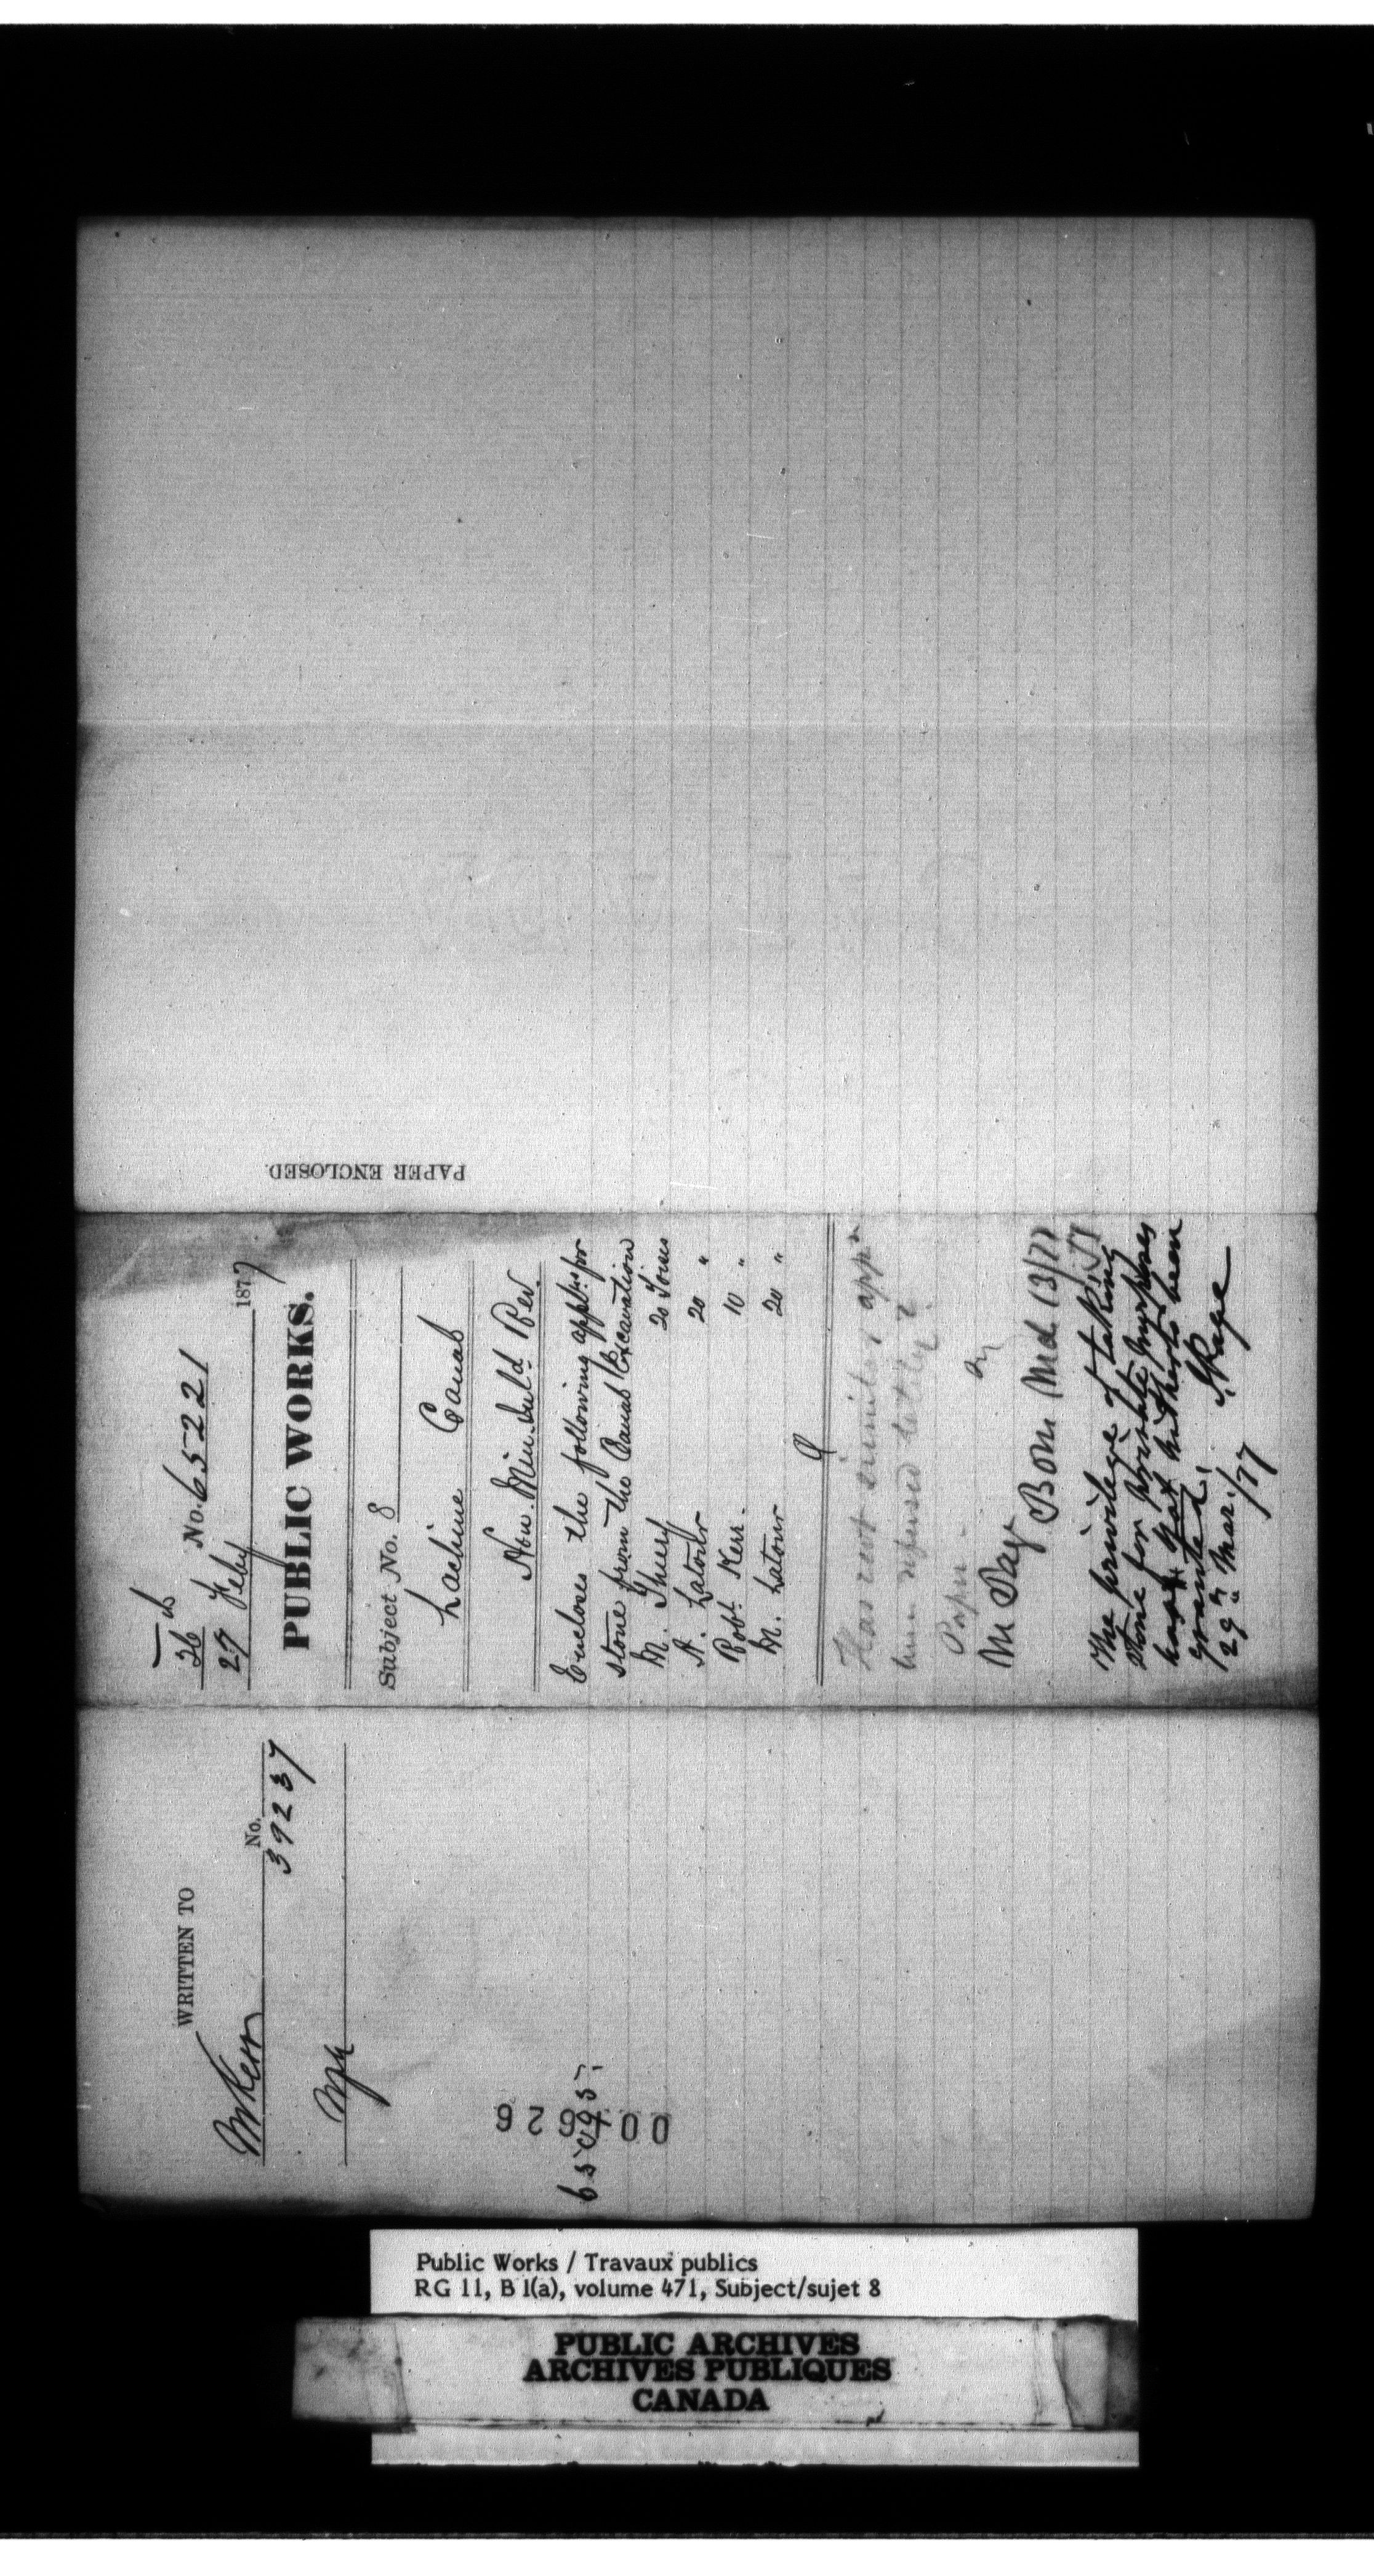 PAPER ENCLOSED.
No. 65221
26
27 Feby 1877
PUBLIC WORKS.
Subject No. 8
Lachine Canal
Hon. Min. Inld. Rev.
Encloses the following appl.ns for
stone from the Canal Excavation
M. Thuey 20 Toises
A. Latour 20 "
Robt. Kerr. 10 "
M. Latour 20 "
Has not similar appn
been refused lately?
Papers
Mr Page
Bom Md 13/77
The privilege of taking
stone for private purposes
has not hitherto been
granted.
J. Page
29th Mar. /77
WRITTEN TO
No.
Mr Kerr 39237
65095
007626
Public Works / Travaux publics
RG 11, B 1(a), volume 471, Subject/sujet 8
PUBLIC ARCHIVES
ARCHIVES PUBLIQUES
CANADA